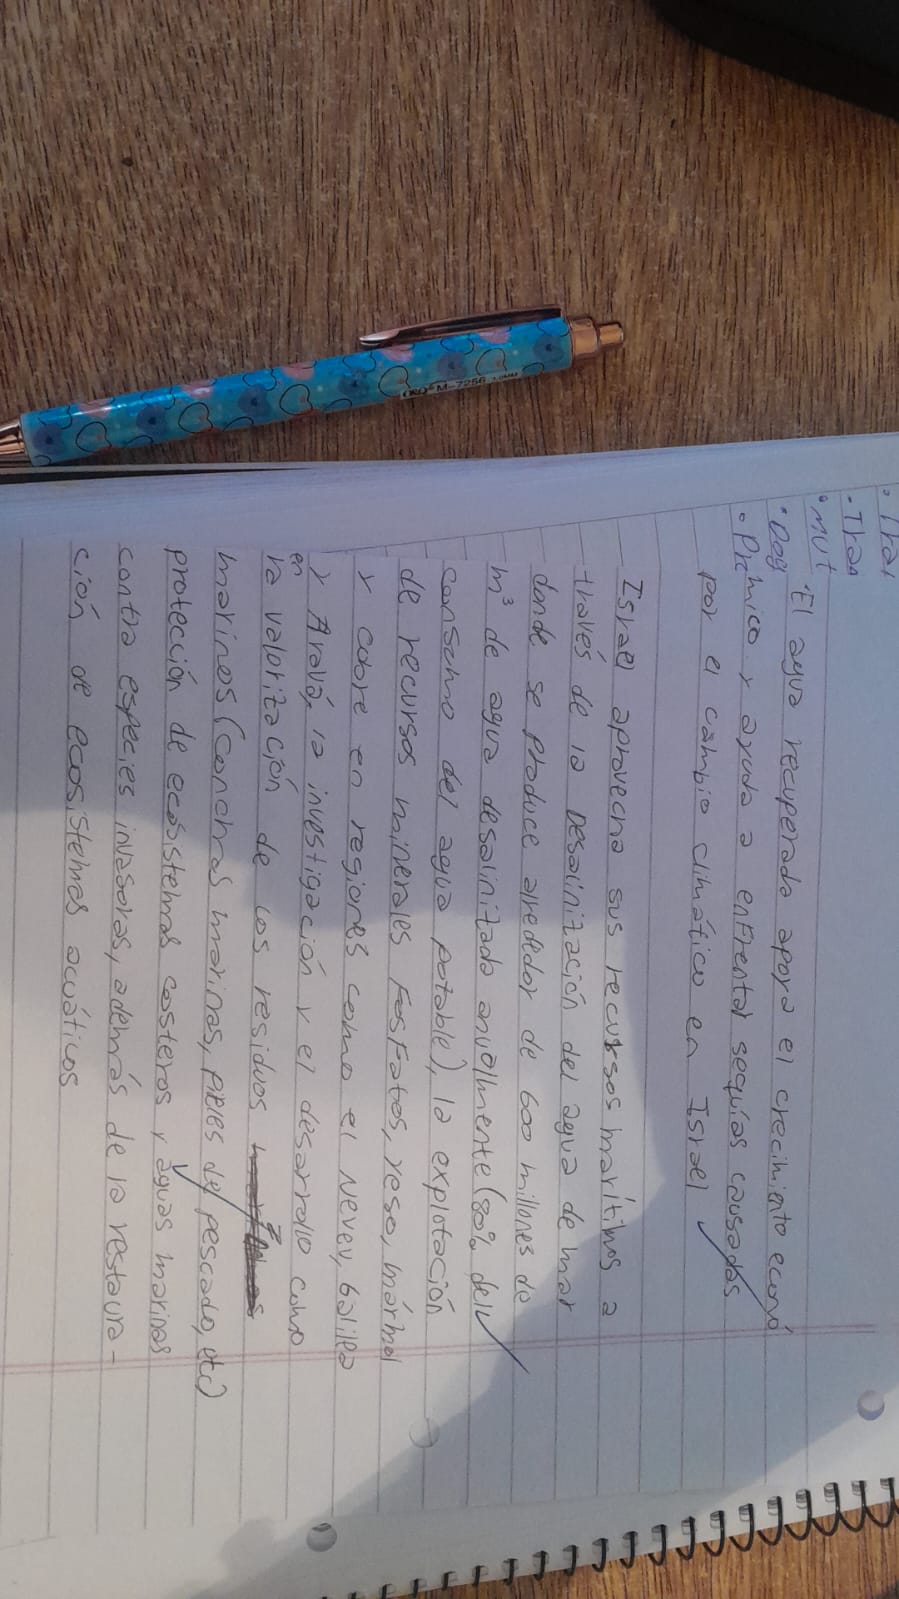 · Tra
- Tra
· MUT
· Dog
· Pr
El agua recuperada apoya el crecimiento econó
mico y ayuda a enfrentar sequías causadas
por el cambio climático en Israel
Israel aprovecha sus recursos marítimos a
través de la Desalinización del agua de mar
donde se produce alrededor de 600 millones de
m³ de agua desalinizada anualmente (80% del
consumo del agua potable), la explotación
de recursos minerales Fosfatos, yeso, mármol
y cobre en regiones como el Neveu, Galilea
y Aravá, la investigación y el desarrollo como
en
la valorización de los residuos
marinos (Conchas marinas, pieles de pescado, etc)
protección de ecosistemas costeros y aguas marinas
contra especies invasoras, además de la restaura-
ción de ecosistemas acuáticos